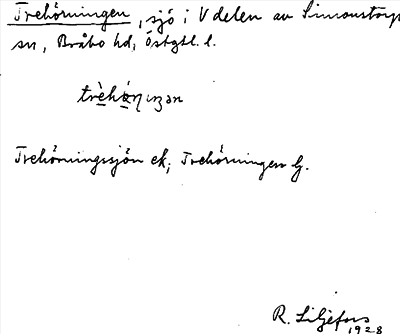 Trehörningen, sjö i V delen av Simonstorps
sn, Bråbo hd, Östgtl. l.
Trehörningssjön ek; Trehörningen
R. Liljefors
1928